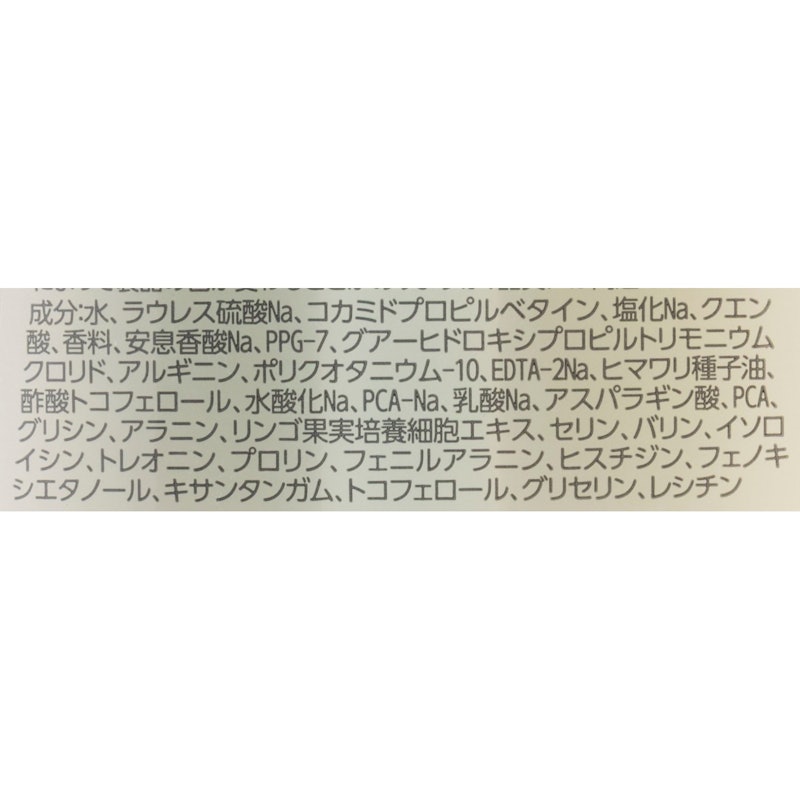 成分:水、ラウレス硫酸Na、コカミドプロピルベタイン、塩化Na、クエン
酸、香料、安息香酸Na、PPG-7、グアーヒドロキシプロピルトリモニウム
クロリド、アルギニン、ポリクオタニウム-10、EDTA-2Na、ヒマワリ種子油、
酢酸トコフェロール、水酸化Na、PCA-Na、乳酸Na、アスパラギン酸、PCA、
グリシン、アラニン、リンゴ果実培養細胞エキス、セリン、バリン、イソロ
イシン、トレオニン、プロリン、フェニルアラニン、ヒスチジン、フェノキ
シエタノール、キサンタンガム、トコフェロール、グリセリン、レシチン